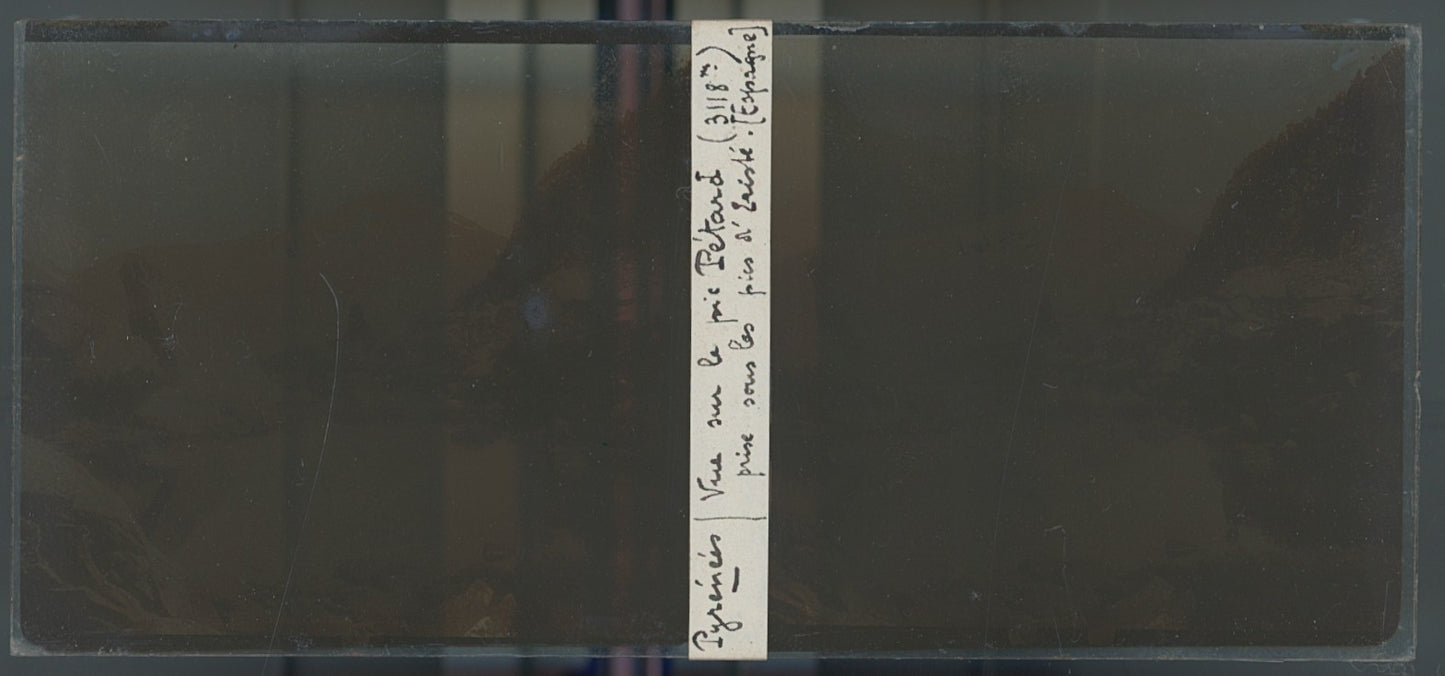 Pyrénées | Vue sur le pic Pétard (3118m)
prise sous les pics d'Eristé. [Espagne]